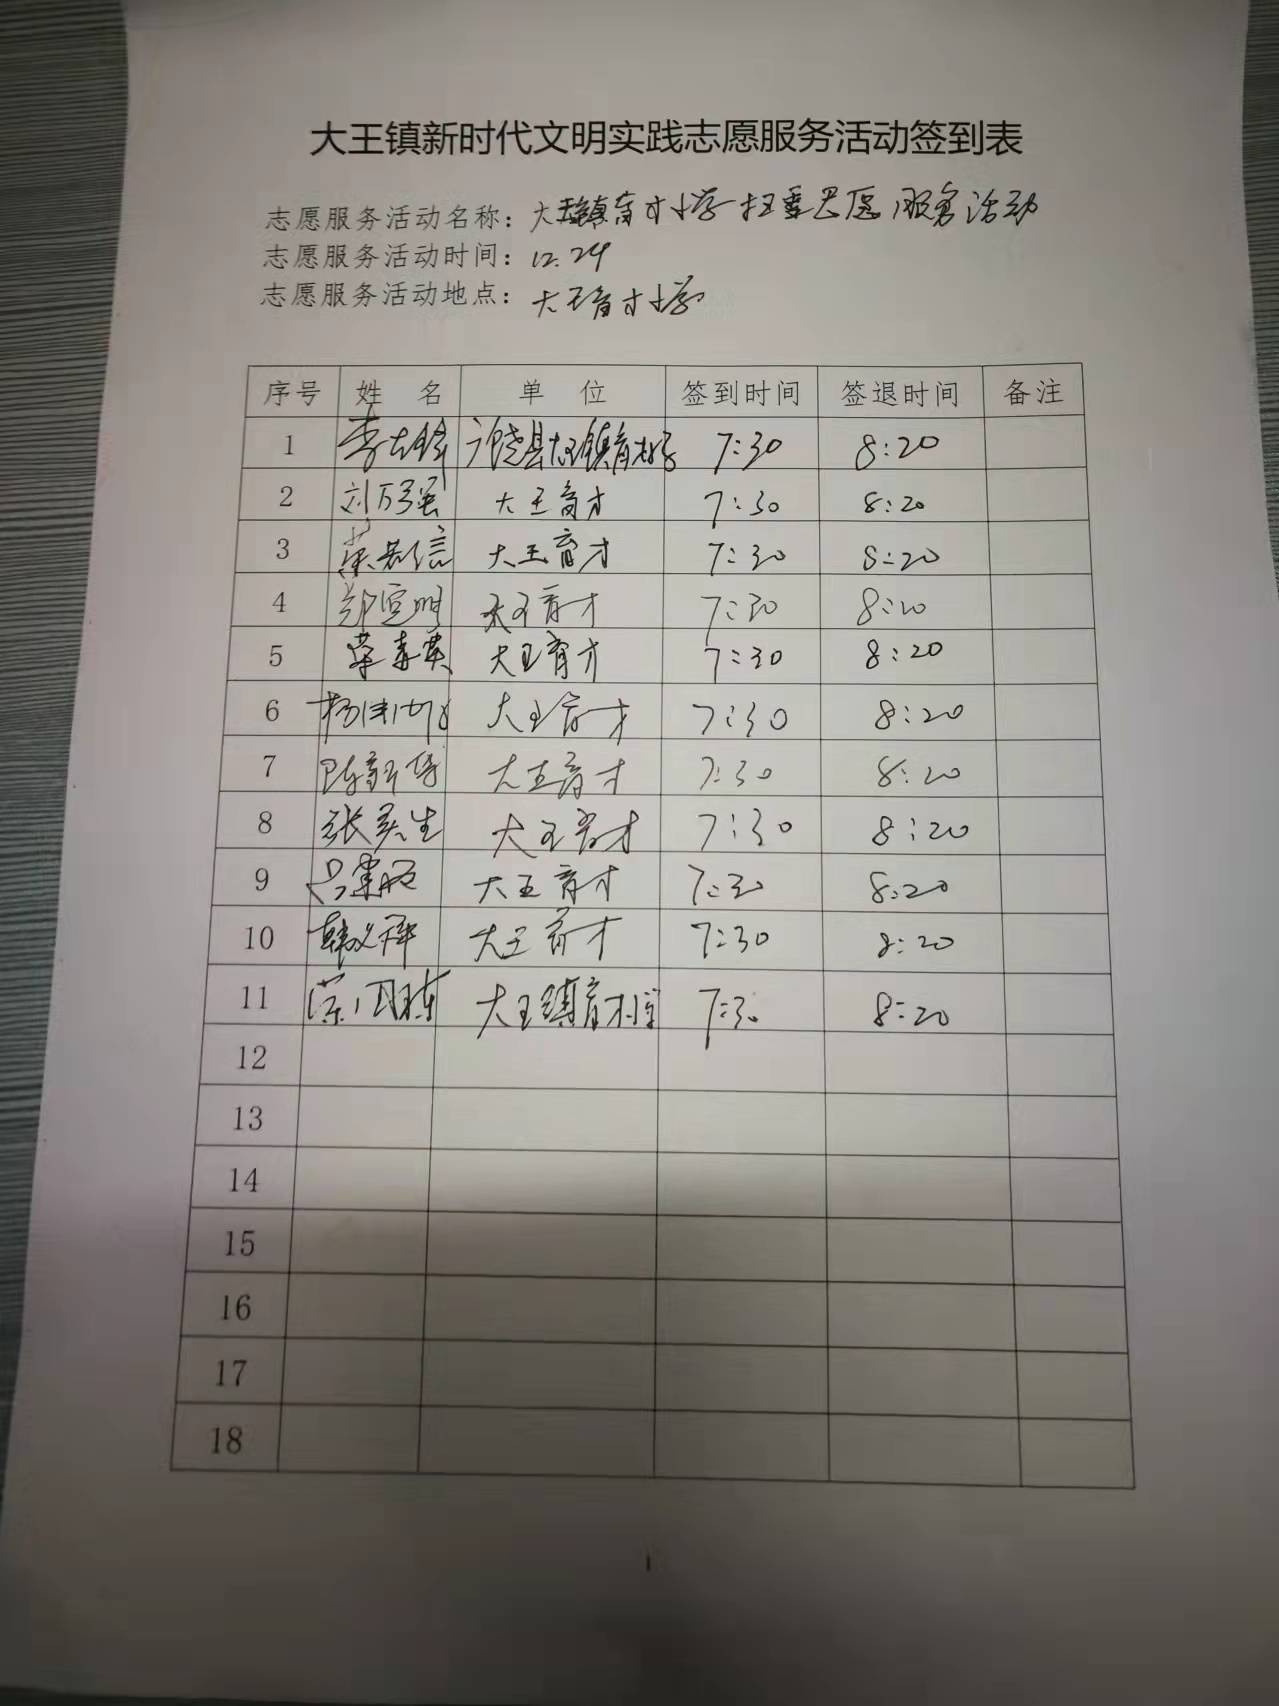 大王镇新时代文明实践志愿服务活动签到表
志愿服务活动名称：大王镇育才小学扫雪志愿服务活动
志愿服务活动时间：12.24
志愿服务活动地点：大王育才小学
序号 姓 名 单 位 签到时间 签退时间 备注
1 广饶县大王镇育才小学 7:30 8:20
2 刘万强 大王育才 7:30 8:20
3 大王育才 7:30 8:20
4 大王育才 7:30 8:20
5 大王育才 7:30 8:20
6 大王育才 7:30 8:20
7 大王育才 7:30 8:20
8 大王育才 7:30 8:20
9 大王育才 7:30 8:20
10 大王育才 7:30 8:20
11 大王镇育才小学 7:30 8:20
12
13
14
15
16
17
18
1